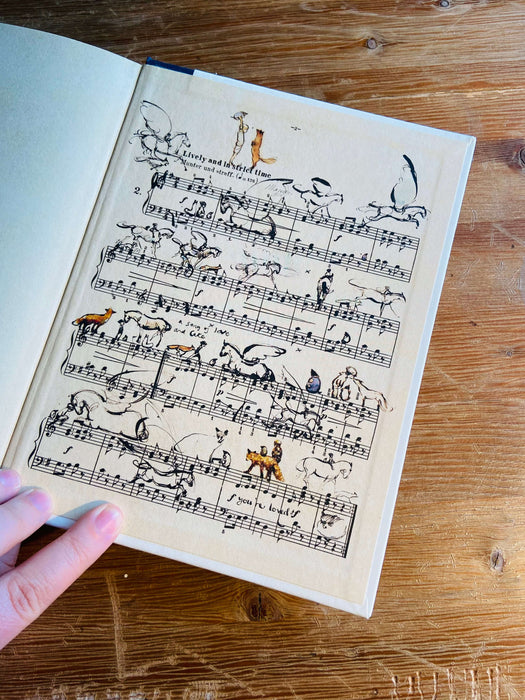 Lively and in strict time
Munter und straff. (♩=126)
2.
a song of love
and Cake
you're loved